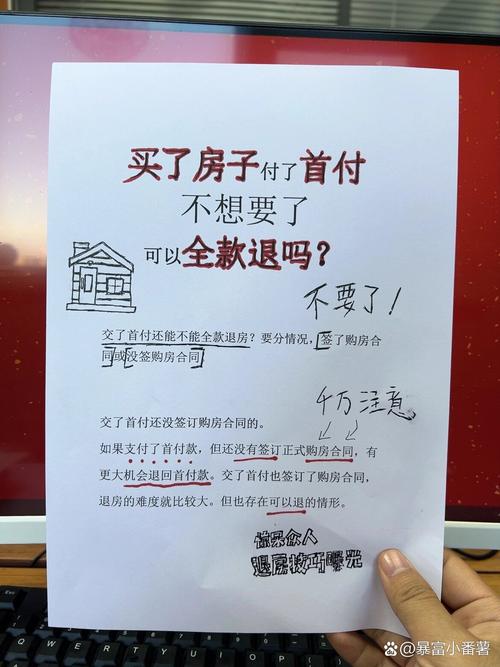 买了房子付了首付
不想要了
可以全款退吗？
不要了！
交了首付还能不能全款退房？要分情况，签了购房合
同或没签购房合同
千万注意
交了首付还没签订购房合同的。
如果支付了首付款，但还没有签订正式购房合同，有
更大机会退回首付款。交了首付也签订了购房合同，
退房的难度就比较大。但也存在可以退的情形。
惊呆众人
退房技巧曝光
@暴富小番薯